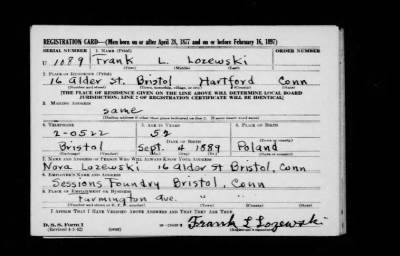 REGISTRATION CARD—(Men born on or after April 28, 1877 and on or before February 16, 1897)
SERIAL NUMBER 1. NAME (Print) ORDER NUMBER
U 1089 Frank L. Lozewski
(First) (Middle) (Last)
2. PLACE OF RESIDENCE (Print)
16 Alder St. Bristol Hartford Conn
(Number and street) (Town, township, village, or city) (County) (State)
[THE PLACE OF RESIDENCE GIVEN ON THE LINE ABOVE WILL DETERMINE LOCAL BOARD
JURISDICTION; LINE 2 OF REGISTRATION CERTIFICATE WILL BE IDENTICAL]
3. MAILING ADDRESS
same
[Mailing address if other than place indicated on line 2. If same insert word same]
4. TELEPHONE 5. AGE IN YEARS 6. PLACE OF BIRTH
2-0522 52
DATE OF BIRTH (Town or county)
Bristol Sept. 4 1889 Poland
(Exchange) (Number) (Mo.) (Day) (Yr.) (State or country)
7. NAME AND ADDRESS OF PERSON WHO WILL ALWAYS KNOW YOUR ADDRESS
Nora Lozewski 16 Alder St Bristol, Conn
8. EMPLOYER'S NAME AND ADDRESS
Sessions Foundry Bristol, Conn
9. PLACE OF EMPLOYMENT OR BUSINESS
Farmington Ave.
(Number and street or R. F. D. number) (Town) (County) (State)
I AFFIRM THAT I HAVE VERIFIED ABOVE ANSWERS AND THAT THEY ARE TRUE.
D. S. S. Form 1
(Revised 4-1-42) (over) Frank L Lozewski